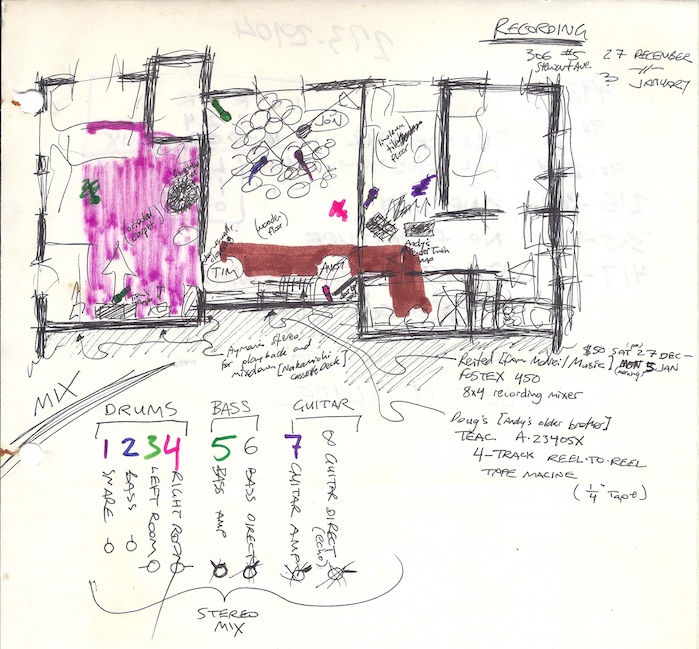 RECORDING
306 #5
Stewart Ave.
27 DECEMBER
3 JANUARY
JON
wooden
floor
(wooden)
floor
oriental
carpet
TIM
ANDY
Andy's
Fender Twin
Amp
Ayman's Stereo
for playback and
mixdown [Nakamichi
Cassette Deck]
Rented [from McNeil Music]
$50 SAT 27 DEC-
5 JAN
FOSTEX 450
8x4 recording mixer
Doug's [Andy's older brother]
TEAC A-2340SX
4-TRACK REEL-TO-REEL
TAPE MACINE
(1/4" Tape)
MIX
DRUMS BASS GUITAR
1 2 3 4 5 6 7 8
SNARE
BASS
LEFT ROOM
RIGHT ROOM
BASS AMP
BASS DIRECT
GUITAR AMP
GUITAR DIRECT
(echo)
STEREO
MIX